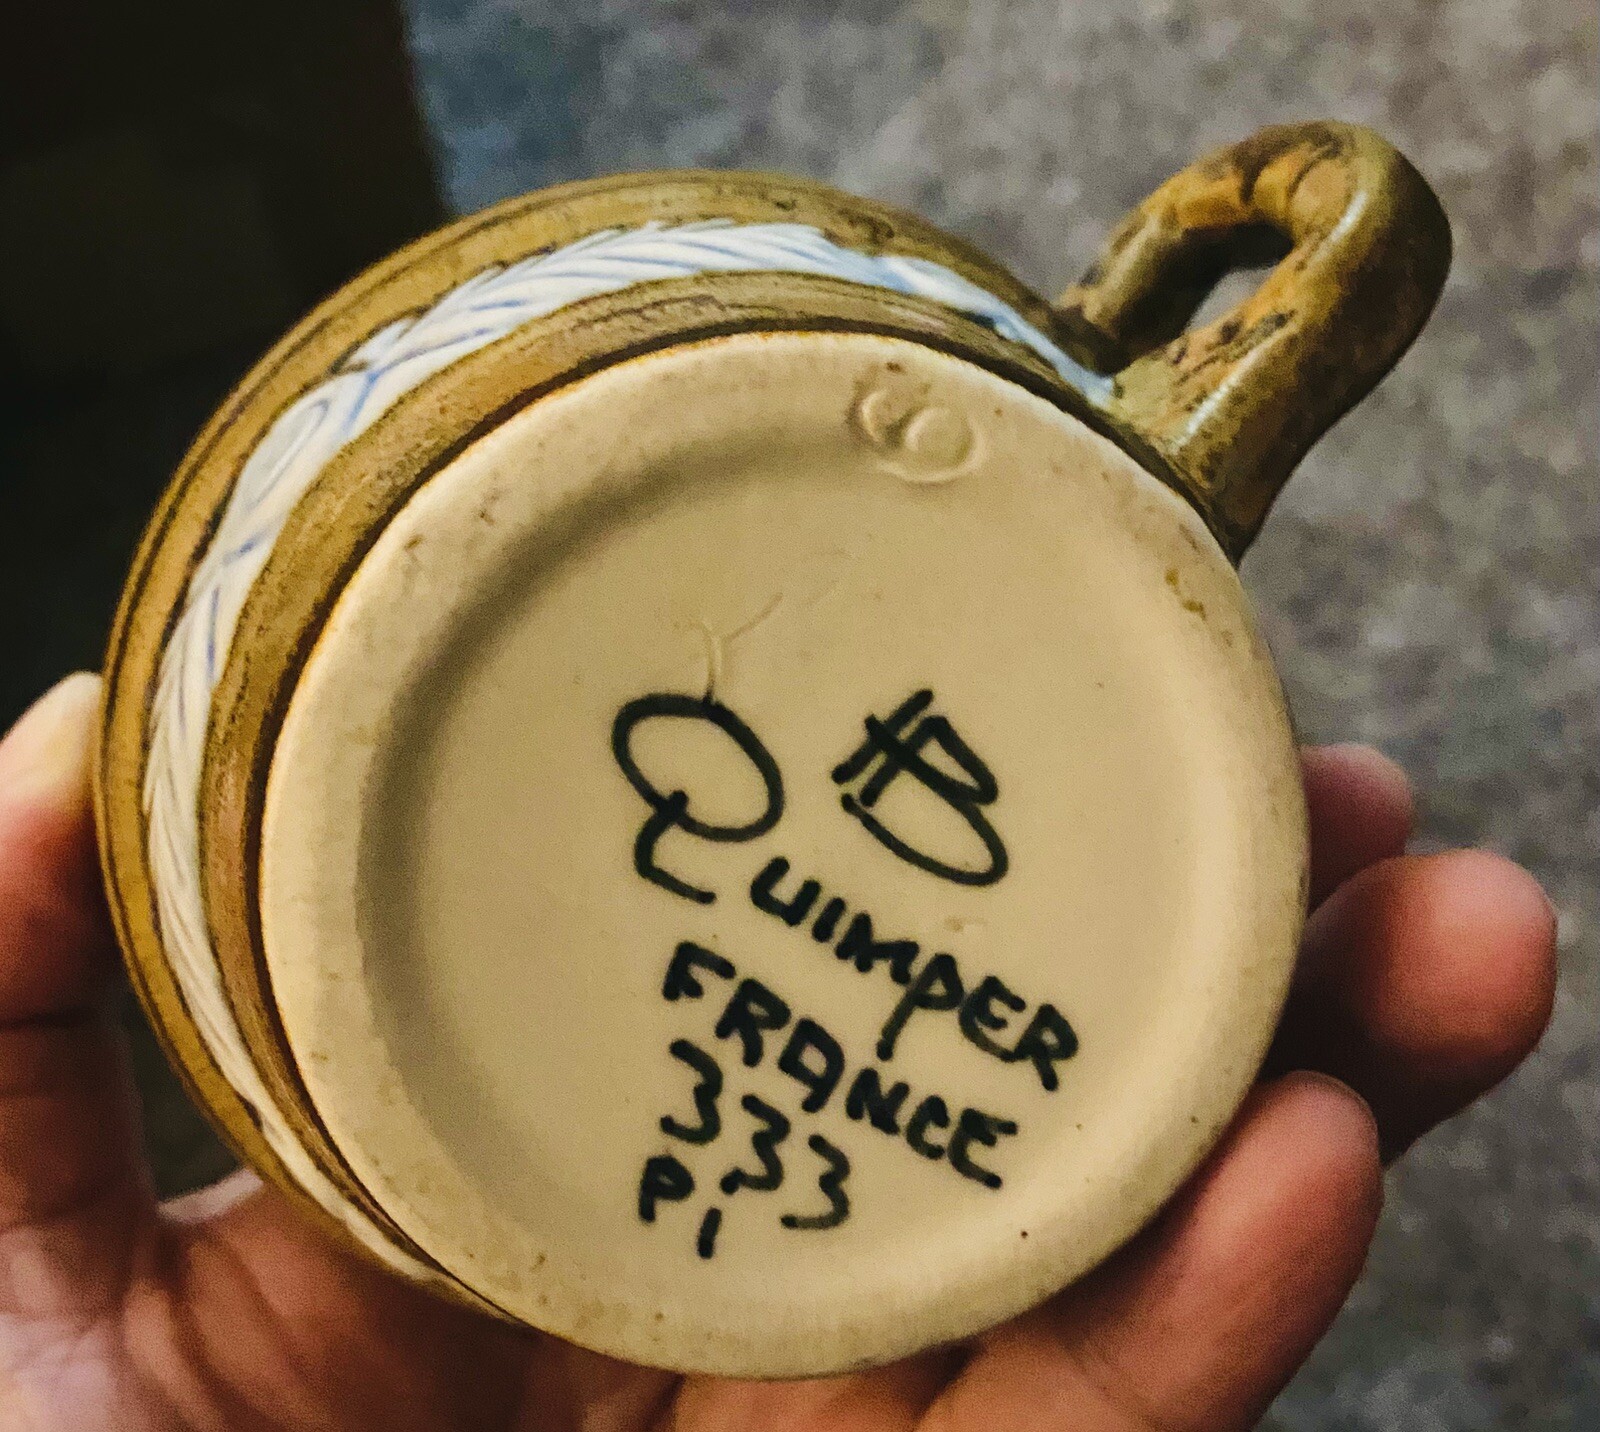 6
HB
QUIMPER
FRANCE
333
P1